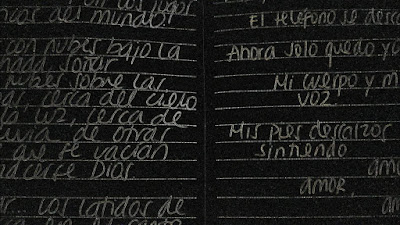 con los jugos
del mundo
con nubes bajo la
nada soñar
nubes sobre las
cerca del cielo
la luz, cerca de
de otras
que se vacían
hacerse Dios
Los latidos de
El teléfono se desc
Ahora solo quedo yo
Mi cuerpo y m
voz.
Mis pies descalzos
sintiendo
amo
amor,
am